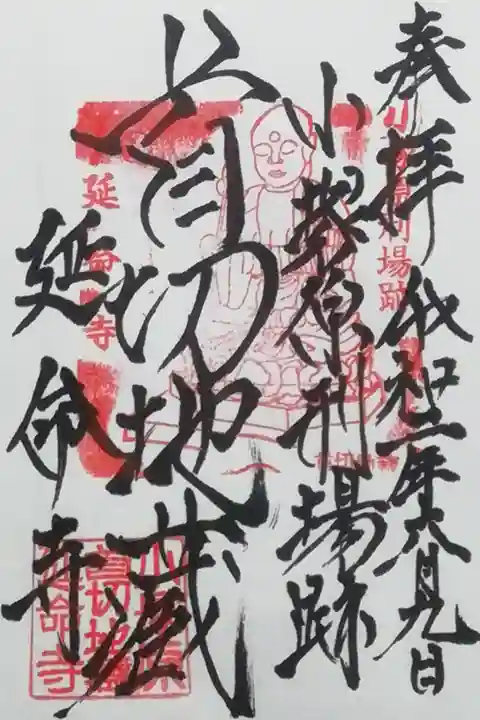 奉拝 令和二年六月九日
小塚原刑場跡
首切地蔵
延命寺
小塚原刑場跡
延命寺
小塚原
首切地蔵
延命寺